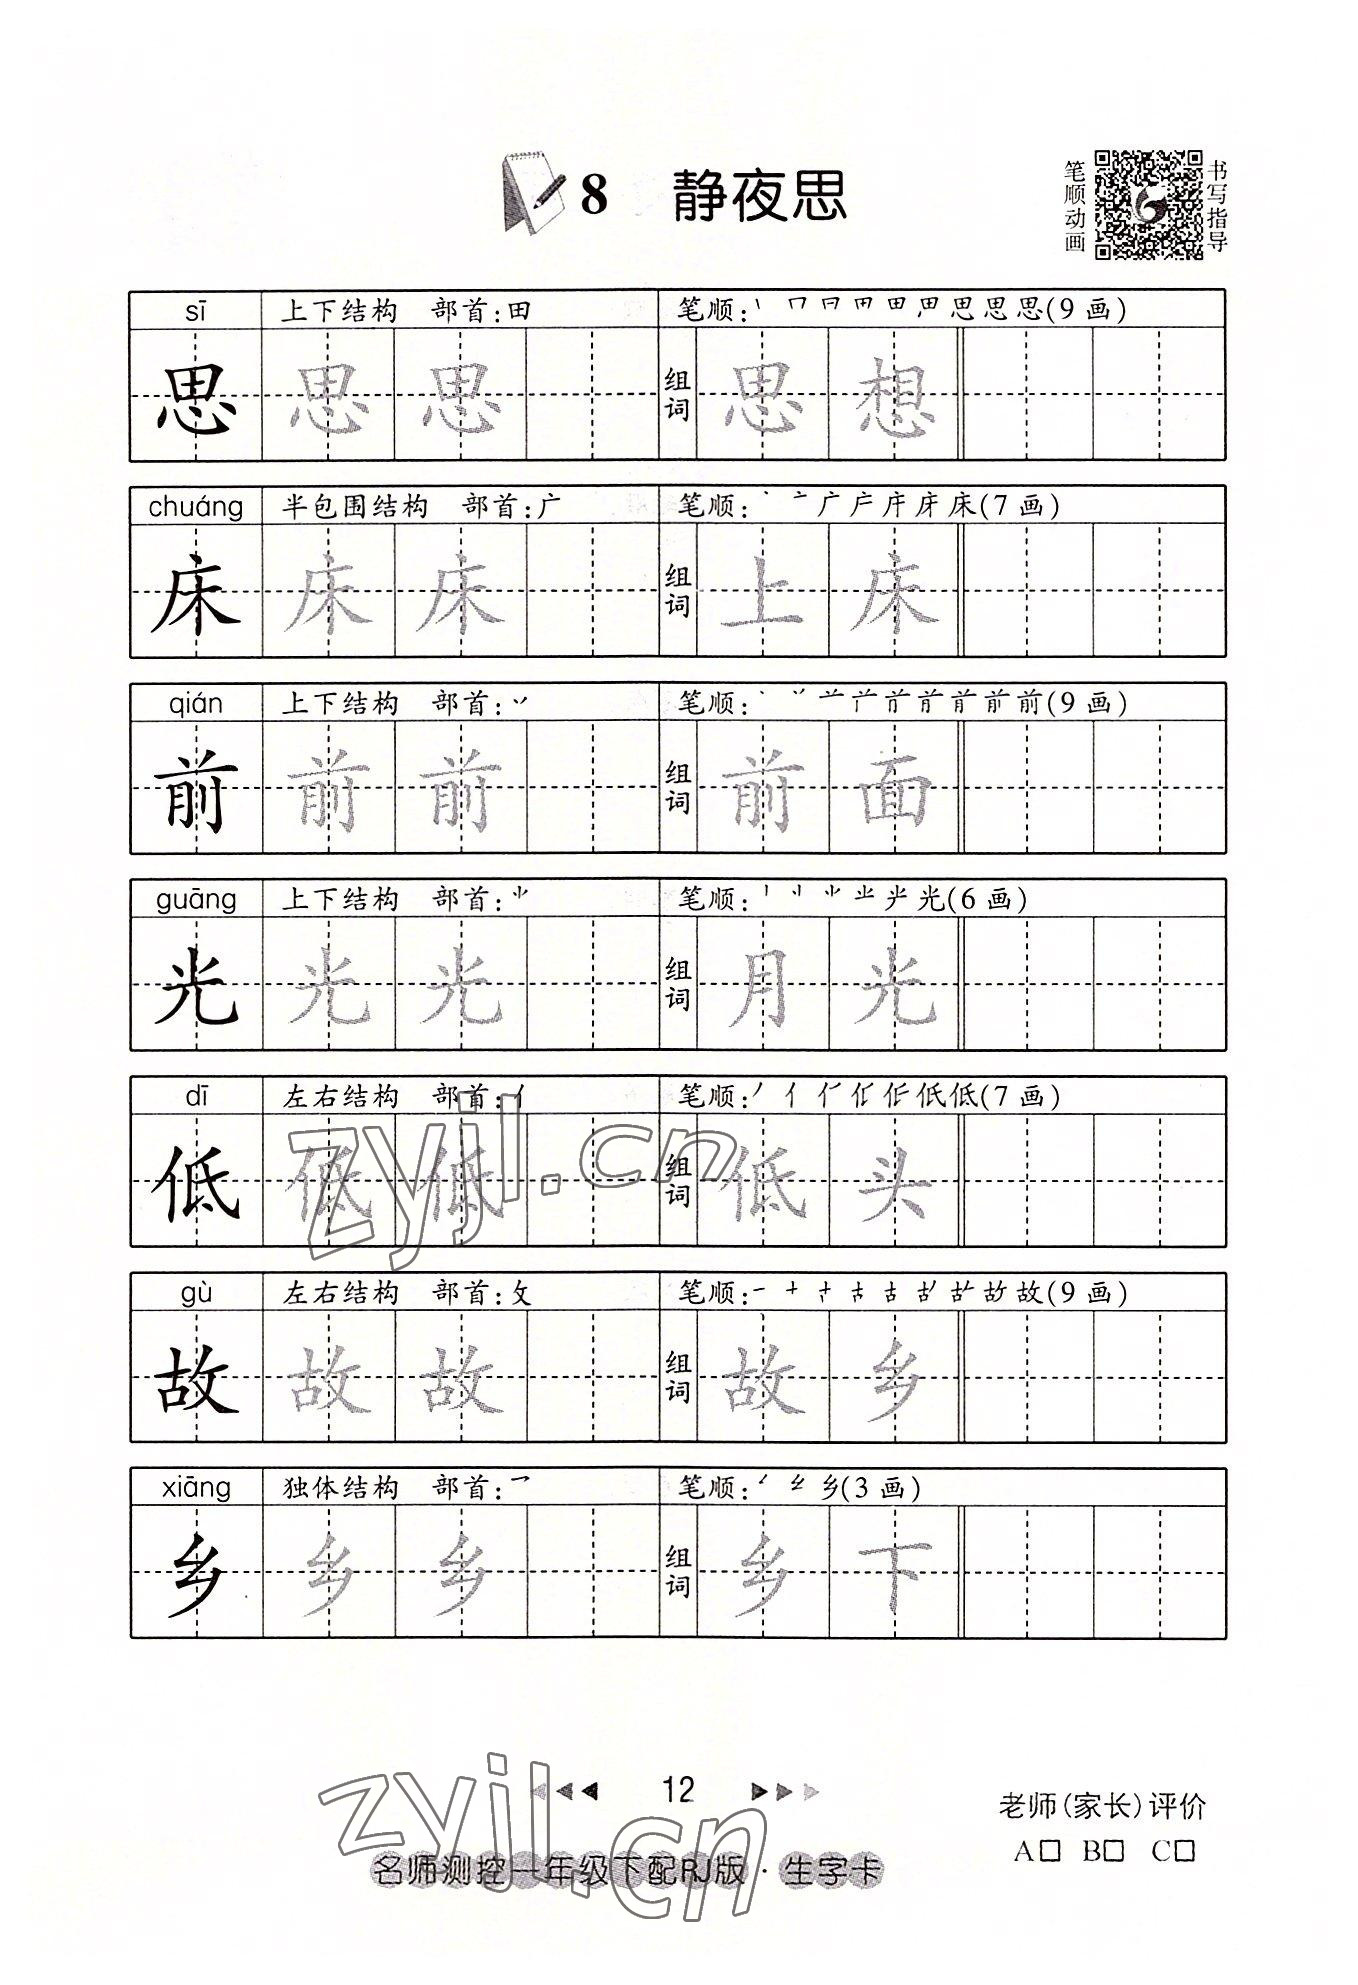 8 静夜思
笔顺动画
书写指导
sī 上下结构 部首:田 笔顺:丨 冂 日 田 田 思 思 思(9 画)
思 思 思 组词 思 想
chuáng 半包围结构 部首:广 笔顺:丶 亠 广 庄 床(7 画)
床 床 床 组词 上 床
qián 上下结构 部首:丷 笔顺:丶 丷 䒑 前 前(9 画)
前 前 前 组词 前 面
guāng 上下结构 部首:⺌ 笔顺:丨 ⺌ 光(6 画)
光 光 光 组词 月 光
dī 左右结构 部首:亻 笔顺:丿 亻 低 低(7 画)
低 低 低 组词 低 头
gù 左右结构 部首:攵 笔顺:一 十 古 古 故 故(9 画)
故 故 故 组词 故 乡
xiāng 独体结构 部首:乛 笔顺:乡(3 画)
乡 乡 乡 组词 乡 下
zyjl.cn
12
老师(家长)评价
A□ B□ C□
zyjl.cn
名师测控一年级下配RJ版·生字卡